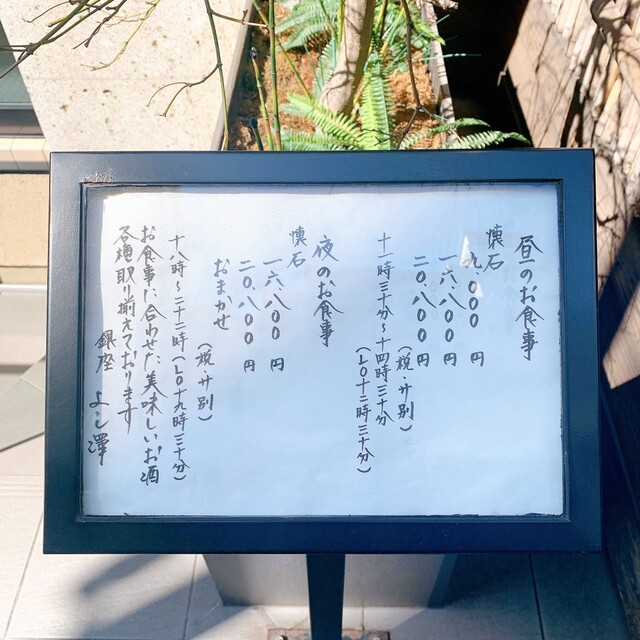 昼のお食事
懐石
九.000円
一六.八00円
二0.八00円
(税・サ別)
十一時三十分〜十四時三十分
(L0十二時三十分)
夜のお食事
懐石
一六.八00円
二0.八00円
おまかせ
(税・サ別)
十八時〜二十二時(L0十九時三十分)
お食事に合わせた美味しいお酒
各種取り揃えております
銀座 よし澤